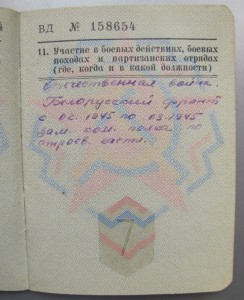 ВД № 158654
11. Участие в боевых действиях, боевых
походах и партизанских отрядах
(где, когда и в какой должности)
Отечественная война.
Белорусский фронт
с 02.1945 по 03.1945
зам. ком. полка по
строев. части.
7